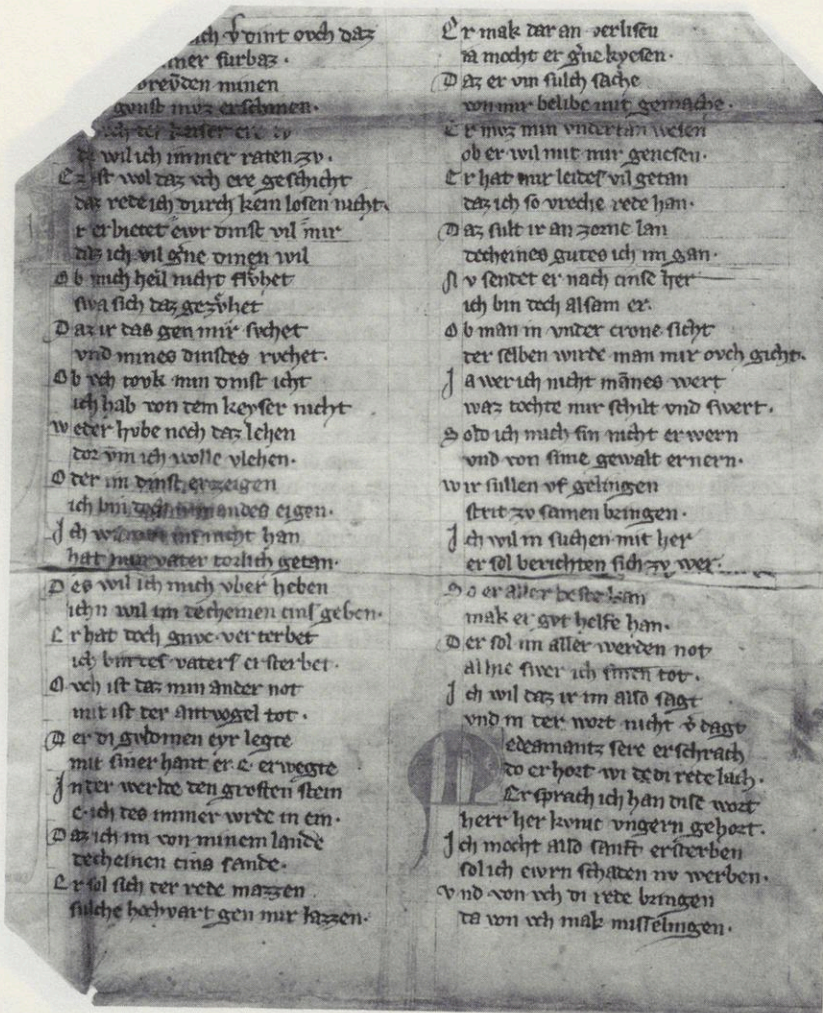 ich v̄dint ovch daz
mer furbaz ·
vrevden minen
gunst mvz erschinen ·
der keiser ere
wil ich immer raten zv ·
Ez ist wol daz vch ere geschicht
daz rede ich durch kein losen nicht ·
r erbietet ewr dinst vil mir
daz ich vil gͤne dinen wil
Ob mich heil nicht flvhet
swa sich daz gezvhet
Daz ir das gen mir svchet
vnd mines dinstes rvchet ·
Ob vch tovk min dinst icht
ich hab von dem keyser nicht
weder hvbe noch daz lehen
dor vm ich wolle vlehen ·
Oder im dinst erzeigen
ich bin eigen ·
Ich nicht han
hat min vater torlich getan ·
Des wil ich mich vber heben
ichn wil im decheinen cins geben ·
Er hat doch gnvc verterbet
ich bin des vaters ersterbet ·
Ovch ist daz min ander not
mir ist der antvogel tot ·
Der di gvldinen eyr legte
mit siner hant er e · erwegte
In der werlde den grosten stein
e · ich des immer wrde in ein ·
Daz ich im von minem lande
decheinen cins sande ·
Er sol sich der rede mazzen
sulche hochvart gen mir lazzen ·
Er mak dar an verlisen
da mocht er gͤne kyesen ·
Daz er vm sulch sache
von mir belibe mit gemache ·
Er mvz min vndertan wesen
ob er wil mit mir genesen ·
Er hat mir leides vil getan
daz ich so vreche rede han ·
Daz sult ir an zorne lan
decheines gutes ich im gan ·
Nv sendet er nach cinse her
ich bin doch alsam er ·
Ob man in vnder crone sicht
der selben wirde man mir ovch gicht ·
Ja wer ich nicht mānes wert
waz tochte mir schilt vnd swert ·
Sold ich mich sin nicht erwern
vnd von sime gewalt ernern ·
wir sullen vf gelingen
strit zv samen bringen ·
Ich wil in suchen mit her
er sol berichten sich zv wer ·
So er aller beste kan
mak er gvt helfe han ·
Der sol im aller werden not
alhie swer ich sinen tot ·
Ich wil daz ir im also sagt
vnd in der wort nicht v̄dagt
Medeamantz sere erschrach
do er hort wi de di rede lach ·
Er sprach ich han dise wort
herr her kvnic vngern gehort ·
Ich mocht also sanft ersterben
sol ich ewrn schaden nv werben ·
vnd von vch di rede bringen
da von vch mak misselingen ·